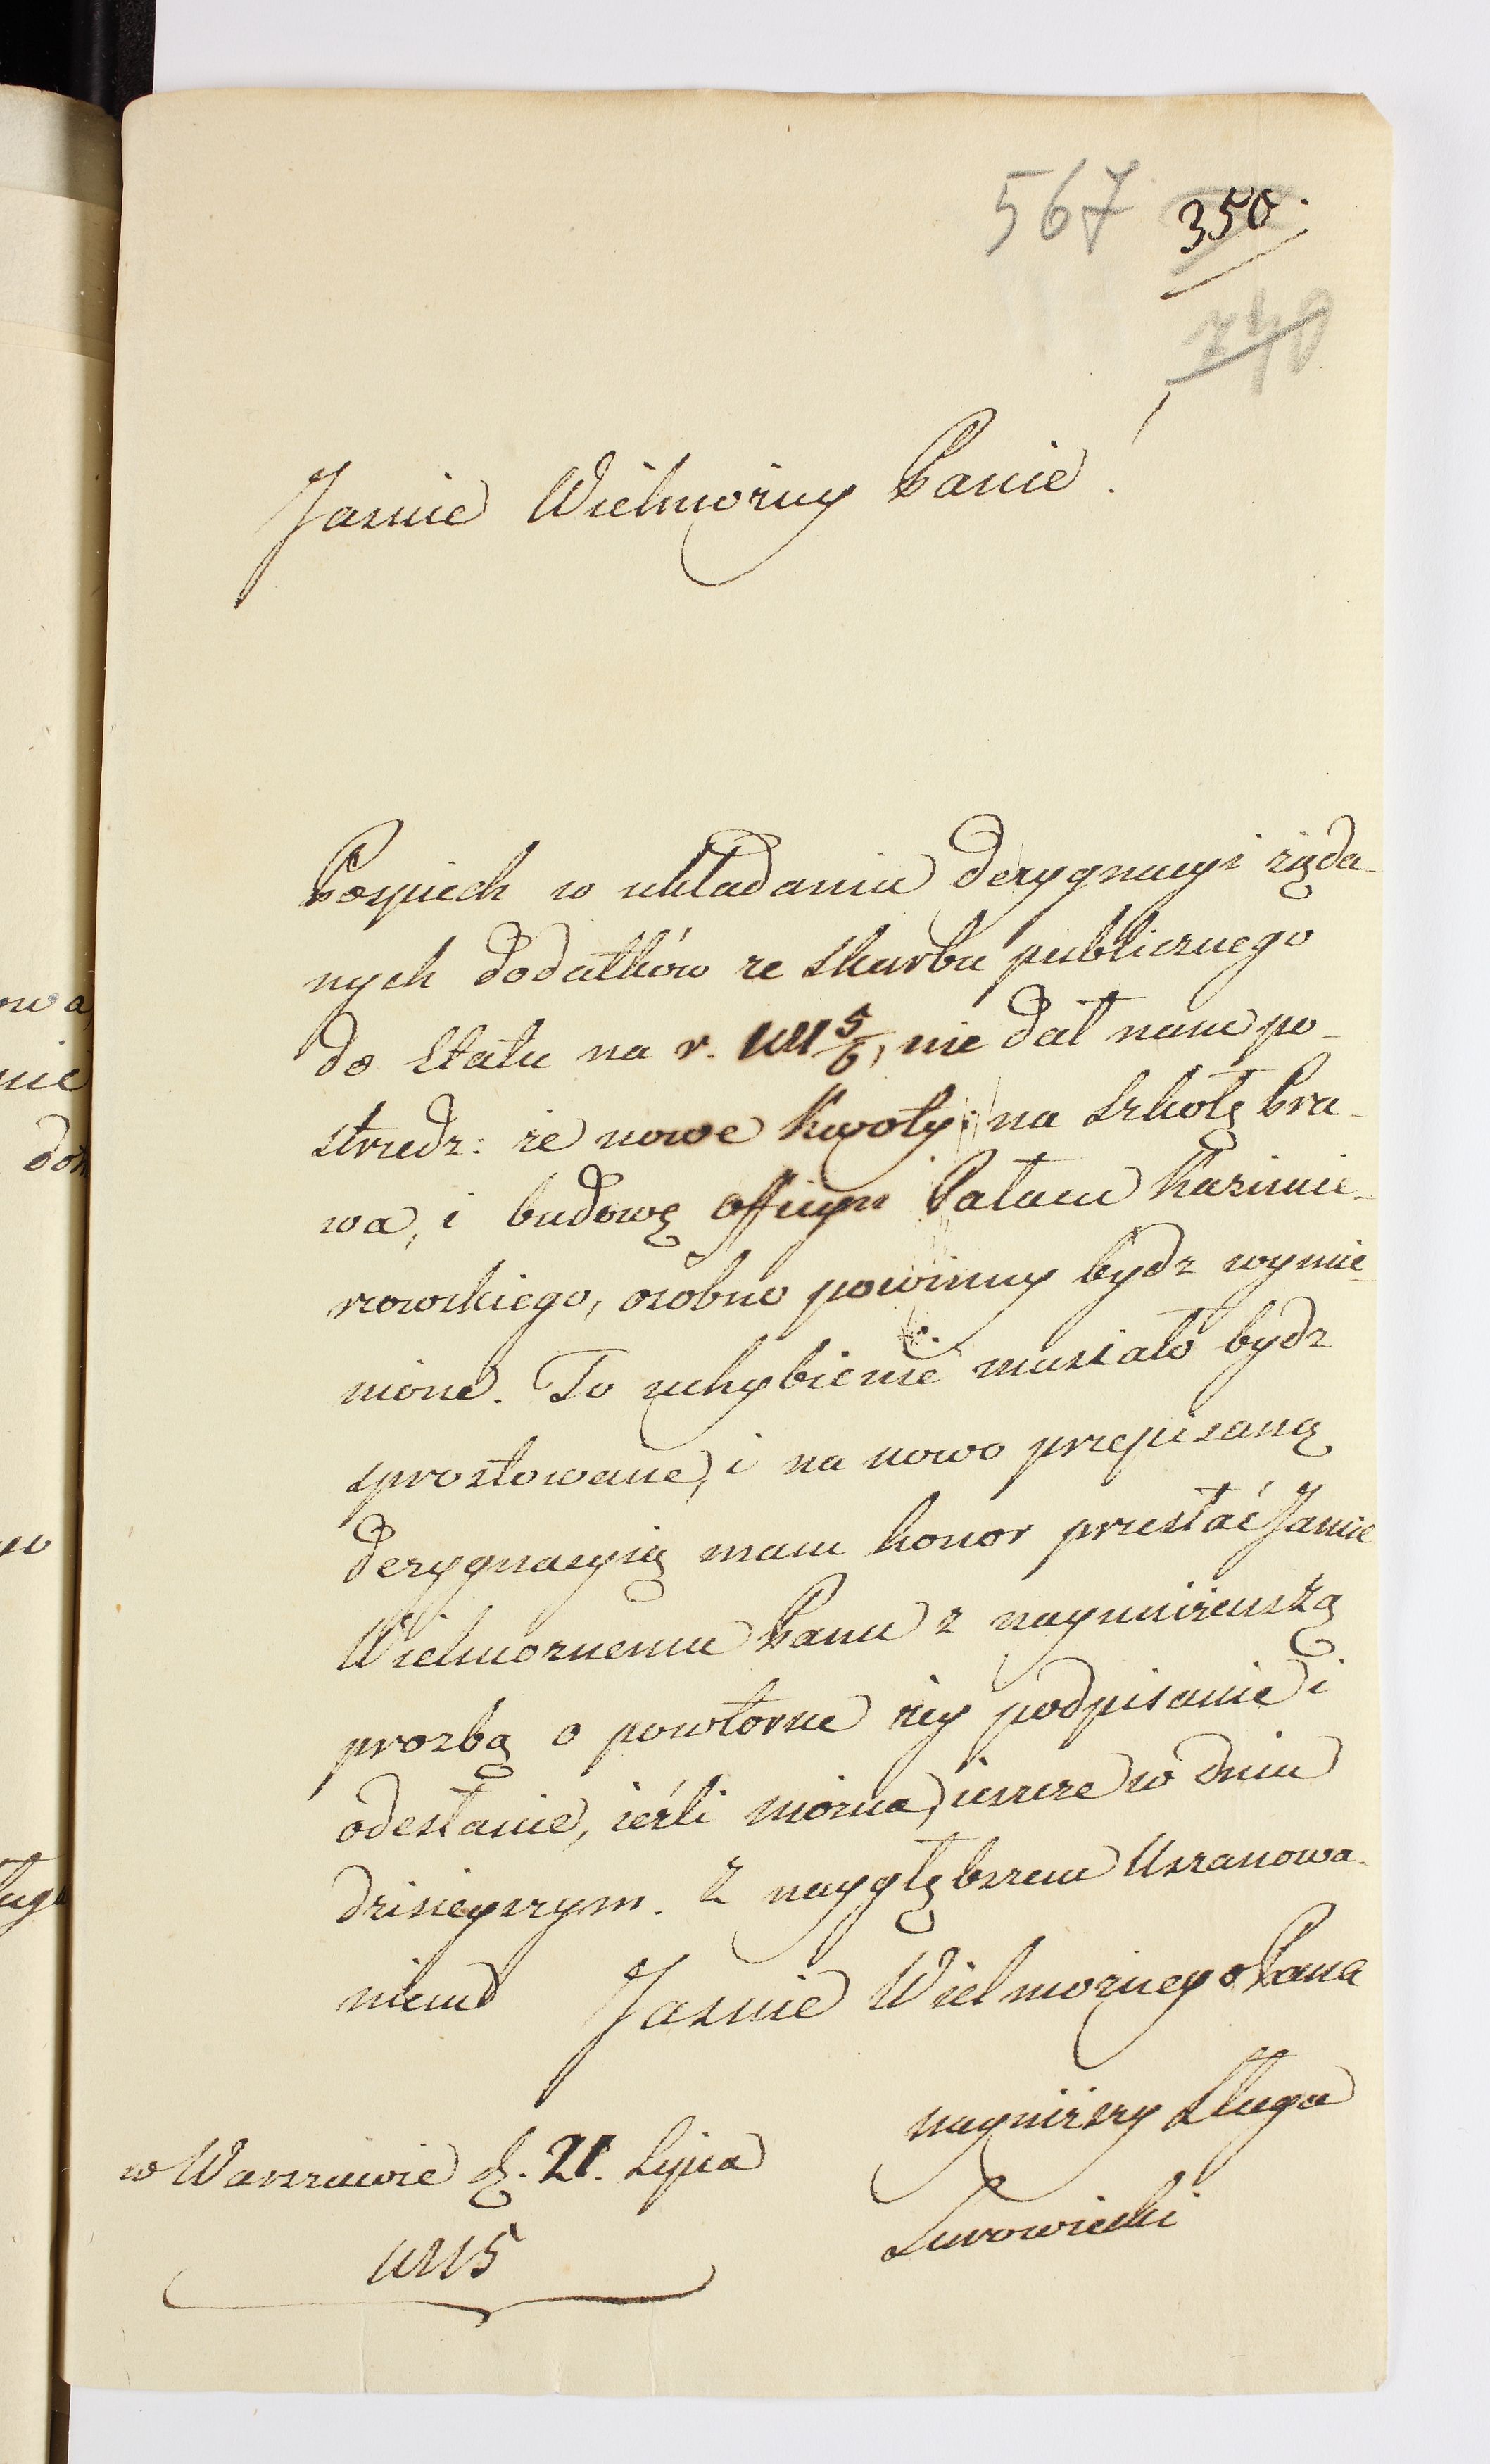 567 350.
740
Jasnie Wielmożny Panie!
Pospiech w układaniu dezygnacyi żąda-
nych dodatków ze skarbu publicznego
do Etatu na r. 181 5/6, nie dał nam po-
strzedz: że nowe kwoty: na szkołę Pra-
wa, i budowę officyn Pałacu Kazimie-
rzowskiego, osobno powinny bydz wymie-
nione. To uchybienie musiało bydz
sprostowane, i na nowo przepisaną
dezygnacyią mam honor przesłać Jasnie
Wielmożnemu Panu z nayuniżeńszą
prozbą o powtorne iey podpisanie i
odesłanie, ieśli można, ieszcze w dniu
dzisieyszym. Z naygłębszem Uszanowa-
niem Jasnie Wielmożnego Pana
w Warszawie d. 21. Lipca
1815
nayniższy Sługa
Surowiecki
owa,
nie